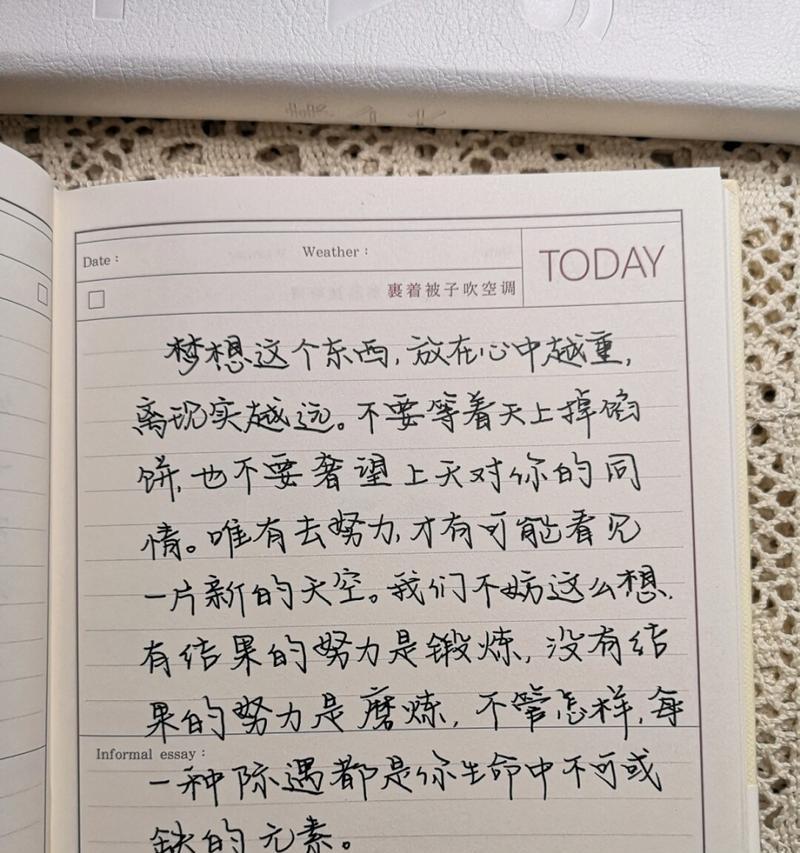 Date：
Weather：
TODAY
裹着被子吹空调
梦想这个东西，放在心中越重，
离现实越远。不要等着天上掉馅
饼，也不要奢望上天对你的同
情。唯有去努力，才有可能看见
一片新的天空。我们不妨这么想，
有结果的努力是锻炼，没有结
果的努力是磨炼，不管怎样，每
Informal essay：
一种际遇都是你生命中不可或
缺的元素。